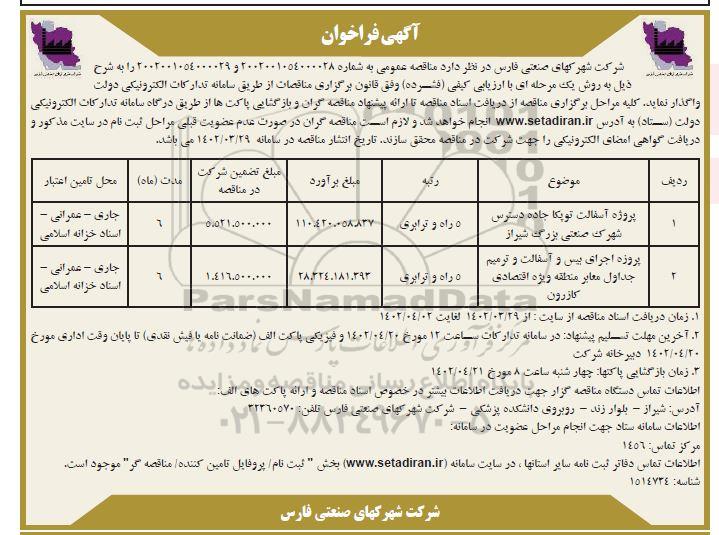 آگهی فراخوان
شرکت شهرکهای صنعتی فارس در نظر دارد مناقصه عمومی به شماره ۲۰۰۲۰۰۱۰۵۴۰۰۰۰۲۸ و ۲۰۰۲۰۰۱۰۵۴۰۰۰۰۲۹ را به شرح
ذیل به روش یک مرحله ای با ارزیابی کیفی (فشرده) وفق قانون برگزاری مناقصات از طریق سامانه تدارکات الکترونیکی دولت
واگذار نماید. کلیه مراحل برگزاری مناقصه از دریافت اسناد مناقصه تا ارائه پیشنهاد مناقصه گران و بازگشایی پاکت ها از طریق درگاه سامانه تدارکات الکترونیکی
دولت (ستاد) به آدرس www.setadiran.ir انجام خواهد شد و لازم است مناقصه گران در صورت عدم عضویت قبلی مراحل ثبت نام در سایت مذکور و
دریافت گواهی امضای الکترونیکی را جهت شرکت در مناقصه محقق سازند. تاریخ انتشار مناقصه در سامانه ۱۴۰۲/۰۳/۲۹ می باشد.
ردیف موضوع رتبه مبلغ برآورد مبلغ تضمین شرکت در مناقصه مدت (ماه) محل تامین اعتبار
۱ پروژه آسفالت توپکا جاده دسترس شهرک صنعتی بزرگ شیراز ۵ راه و ترابری ۱۱۰.۴۲۰.۰۵۸.۸۳۷ ۵.۵۲۱.۵۰۰.۰۰۰ ۶ جاری – عمرانی – اسناد خزانه اسلامی
۲ پروژه اجرای بیس و آسفالت و ترمیم جداول معابر منطقه ویژه اقتصادی کازرون ۵ راه و ترابری ۲۸.۳۲۴.۱۸۱.۳۹۳ ۱.۴۱۶.۵۰۰.۰۰۰ ۶ جاری – عمرانی – اسناد خزانه اسلامی
۱. زمان دریافت اسناد مناقصه از سایت : از ۱۴۰۲/۰۳/۲۹ لغایت ۱۴۰۲/۰۴/۰۲
۲. آخرین مهلت تسلیم پیشنهاد: در سامانه تدارکات ساعت ۱۲ مورخ ۱۴۰۲/۰۴/۲۰ و فیزیکی پاکت الف (ضمانت نامه یا فیش نقدی) تا پایان وقت اداری مورخ
۱۴۰۲/۰۴/۲۰ دبیرخانه شرکت
۳. زمان بازگشایی پاکتها: چهار شنبه ساعت ۸ مورخ ۱۴۰۲/۰۴/۲۱
اطلاعات تماس دستگاه مناقصه گزار جهت دریافت اطلاعات بیشتر در خصوص اسناد مناقصه و ارائه پاکت های الف:
آدرس: شیراز – بلوار زند – روبروی دانشکده پزشکی – شرکت شهرکهای صنعتی فارس تلفن: ۳۲۳۶۰۵۷۰
اطلاعات سامانه ستاد جهت انجام مراحل عضویت در سامانه:
مرکز تماس: ۱۴۵۶
اطلاعات تماس دفاتر ثبت نامه سایر استانها ، در سایت سامانه (www.setadiran.ir) بخش " ثبت نام/ پروفایل تامین کننده/ مناقصه گر" موجود است.
شناسه: ۱۵۱۴۷۳۴
شرکت شهرکهای صنعتی فارس
ParsNamadData
پایگاه اطلاع رسانی مناقصه و مزایده
۰۲۱-۸۸۳۴۹۶۷۰-۵